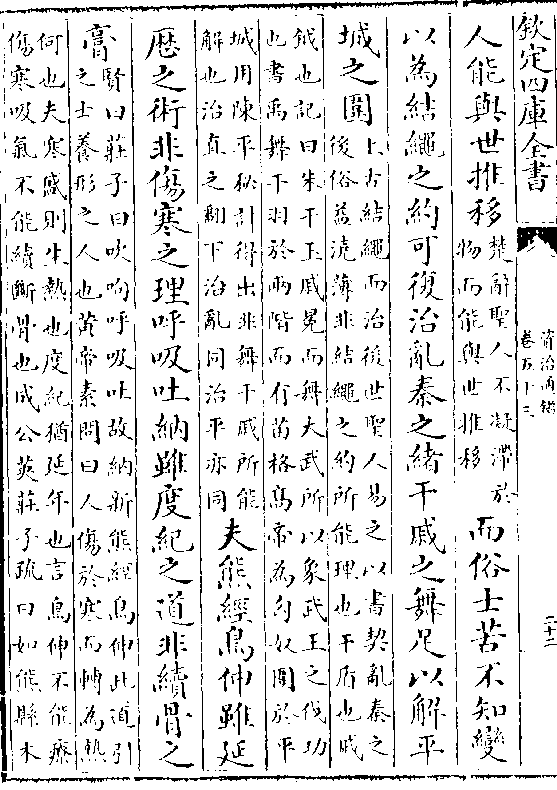 欽定四庫全書
資治通鑑
卷五十三
二十二
人能與世推移
楚辭聖人不凝滯於
物而能與世推移
而俗士苦不知變
以為結繩之約可復治亂秦之緒干戚之舞足以解平
城之圍
上古結繩而治後世聖人易之以書契亂秦之
後俗益澆薄非結繩之約所能理也干盾也戚
鉞也記曰朱干玉戚冕而舞大武所以象武王之伐功
也書禹舞干羽於兩階而有苗格高帝為匈奴圍於平
城用陳平秘計得出非舞干戚所能
解也治直之翻下治亂同治平亦同
夫熊經鳥伸雖延
厯之術非傷寒之理呼吸吐納雖度紀之道非續骨之
膏
賢曰莊子曰吹呴呼吸吐故納新熊經鳥伸此道引
之士養形之人也黄帝素問曰人傷於寒而轉為熱
何也夫寒盛則生熱也度紀猶延年也言鳥伸不能療
傷寒吸氣不能續斷骨也成公英莊子疏曰如熊縣木